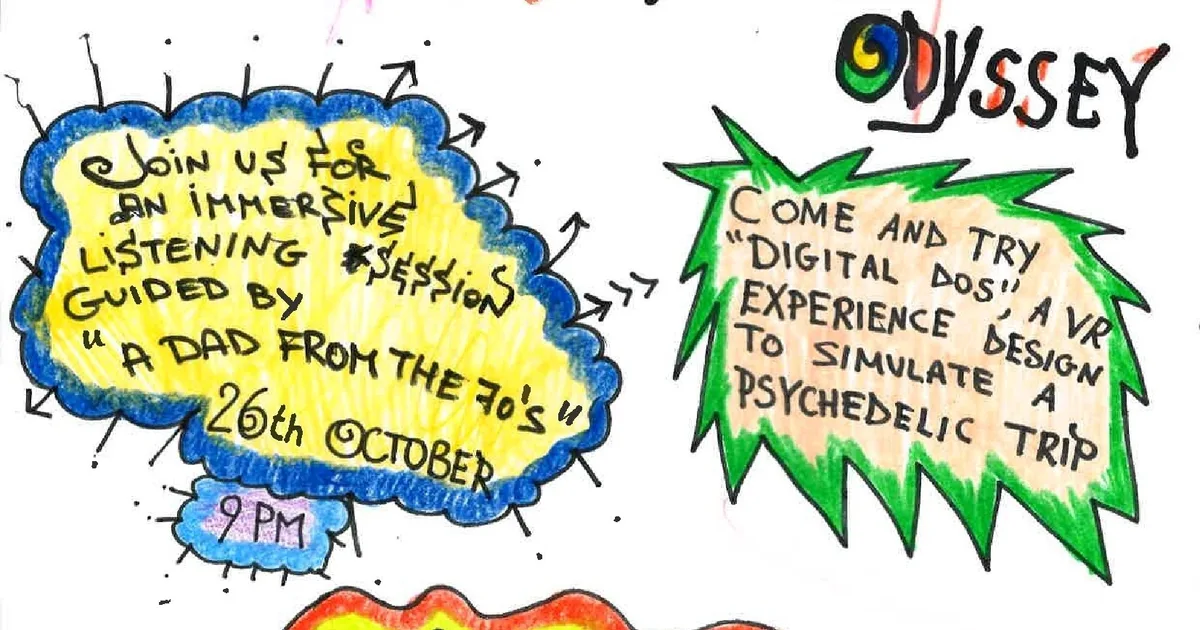 ODYSSEY
JOIN US FOR
AN IMMERSIVE
LISTENING SESSION
GUIDED BY
"A DAD FROM THE 70's"
26th OCTOBER
9 PM
COME AND TRY
"DIGITAL DOS", A VR
EXPERIENCE DESIGN
TO SIMULATE A
PSYCHEDELIC TRIP